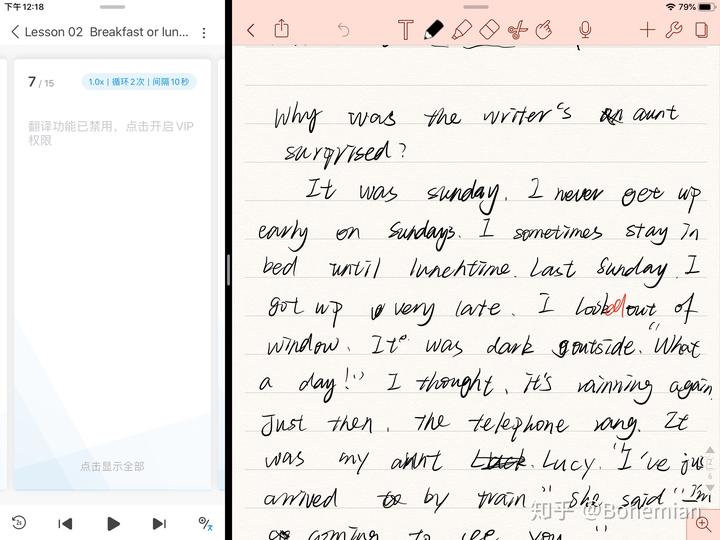 下午12:18
79%
Lesson 02 Breakfast or lun...
7 / 15
1.0x | 循环2次 | 间隔10秒
翻译功能已禁用，点击开启 VIP
权限
点击显示全部
Why was the writer's aunt
surprised?
It was sunday. I never get up
early on Sundays. I sometimes stay in
bed until lunchtime. Last Sunday I
got up very late. I looked out of
window. It was dark outside. "What
a day!" I thought. it's rainning again
Just then, the telephone rang. It
was my aunt Lucy. "I've jus
arrived by train" she said "I'm
coming to see you"
知乎 @Bohemian